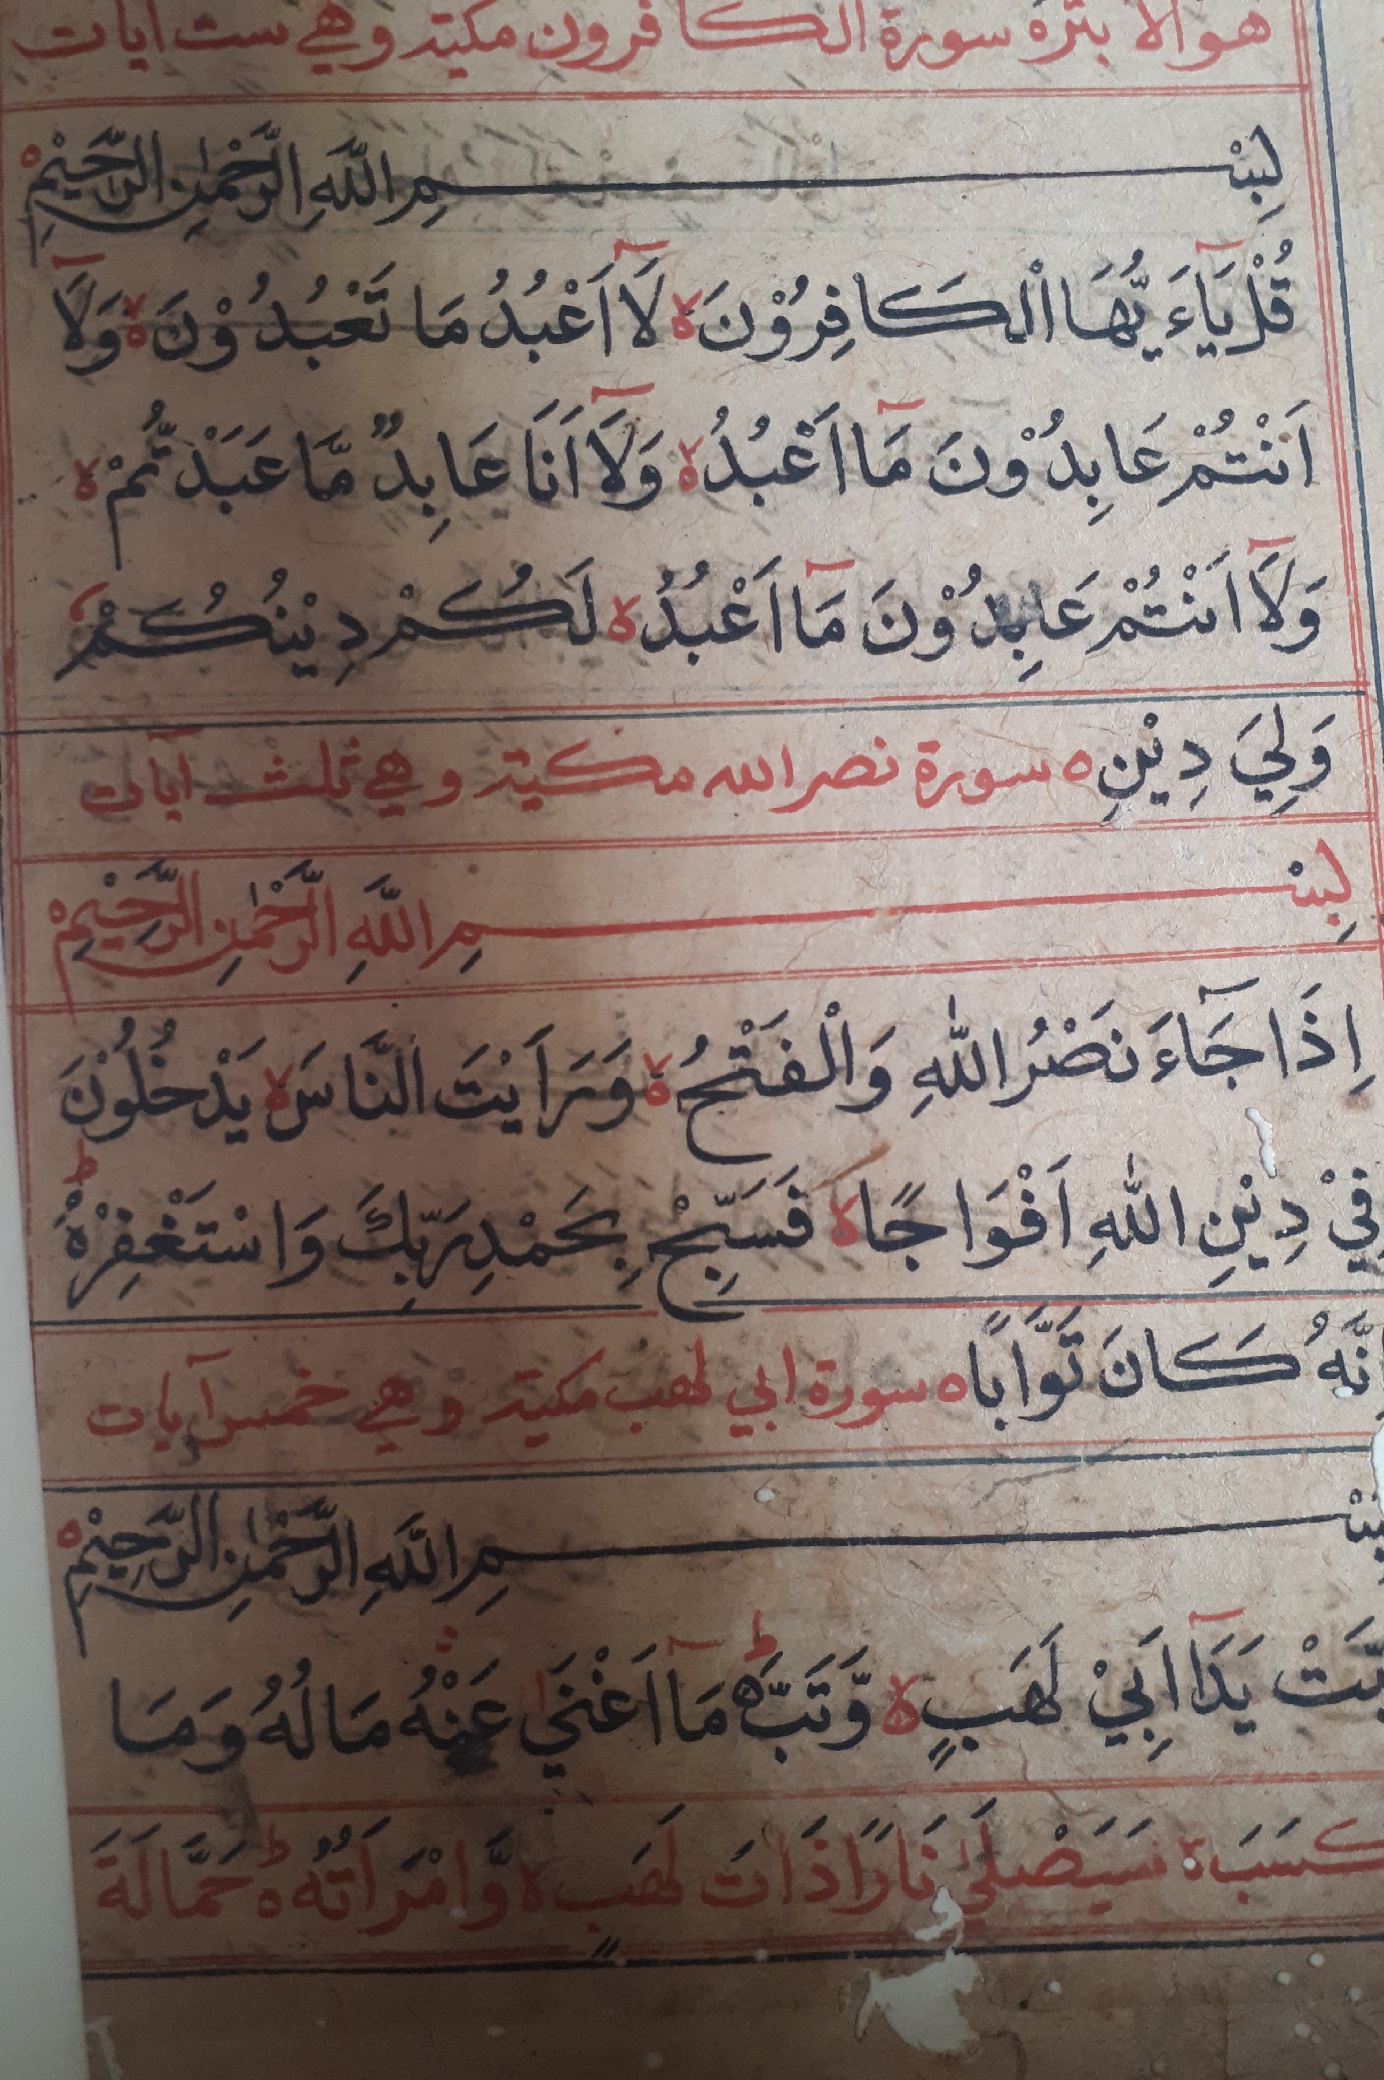 هو الابتره سورة الكافرون مكية وهي ست ايات
بِسْمِ اللَّهِ الرَّحْمٰنِ الرَّحِيْمِ
قُلْ يَآءَيُّهَا الْكَافِرُوْنَ لَآ اَعْبُدُ مَا تَعْبُدُوْنَ وَلَآ
اَنْتُمْ عَابِدُوْنَ مَآ اَعْبُدُ وَلَآ اَنَا عَابِدٌ مَّا عَبَدْتُّمْ
وَلَآ اَنْتُمْ عَابِدُوْنَ مَآ اَعْبُدُ لَكُمْ دِيْنُكُمْ
وَلِيَ دِيْنِ ه سورة نصر الله مكية وهي ثلث آيات
بِسْمِ اللَّهِ الرَّحْمٰنِ الرَّحِيْمِ
اِذَا جَآءَ نَصْرُ اللّٰهِ وَالْفَتْحُ وَرَاَيْتَ النَّاسَ يَدْخُلُوْنَ
فِيْ دِيْنِ اللّٰهِ اَفْوَاجًا فَسَبِّحْ بِحَمْدِ رَبِّكَ وَاسْتَغْفِرْهُ ط
اِنَّهُ كَانَ تَوَّابًا ه سورة ابي لهب مكية وهي خمس آيات
بِسْمِ اللَّهِ الرَّحْمٰنِ الرَّحِيْمِ
تَبَّتْ يَدَآ اَبِيْ لَهَبٍ وَّتَبَّ ط مَآ اَغْنٰي عَنْهُ مَالُهُ وَمَا
كَسَبَ ه سَيَصْلٰي نَارًا ذَاتَ لَهَبٍ ه وَّامْرَاَتُهُ ط حَمَّالَةَ